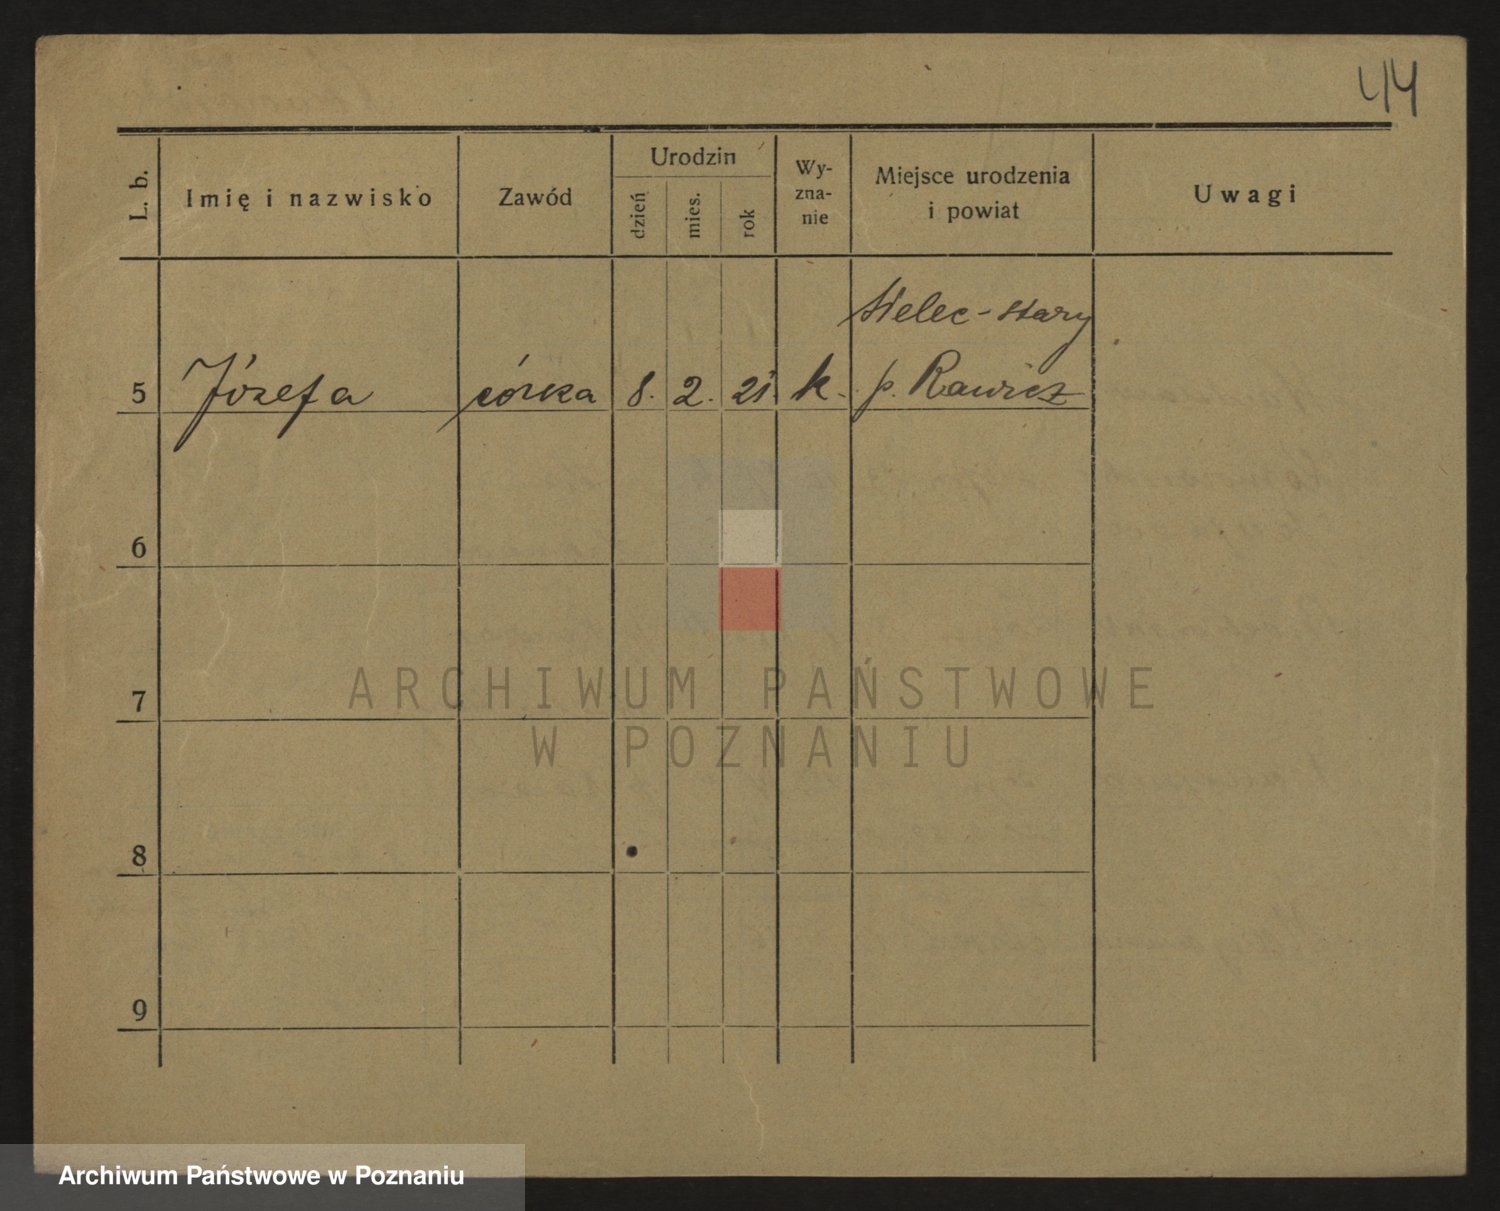 44
L. b. Imię i nazwisko Zawód Urodzin dzień mies. rok Wy-zna-nie Miejsce urodzenia i powiat Uwagi
Sielec-stary
5 Józefa córka 8. 2. 21. k. p. Rawicz
6
7
8
9
ARCHIWUM PAŃSTWOWE
W POZNANIU
Archiwum Państwowe w Poznaniu